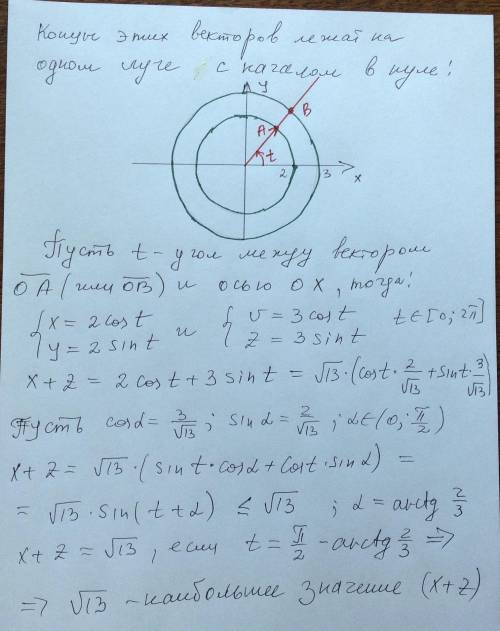 Концы этих векторов лежат на
одном луче с началом в нуле!
y
B
A
t
2
3
x
Пусть t - угол между вектором
O͞A (или O͞B) и осью OX, тогда!
{x = 2 cos t и {v = 3 cos t t∈[0; 2π]
{y = 2 sin t {z = 3 sin t
x + z = 2 cos t + 3 sin t = √13 · (cos t · 2/√13 + sin t · 3/√13)
Пусть cos α = 3/√13 ; sin α = 2/√13 ; α∈(0; π/2)
x + z = √13 · (sin t · cos α + cos t · sin α) =
= √13 · sin(t + α) ≤ √13 ; α = arctg 2/3
x + z = √13, если t = π/2 - arctg 2/3 ⇒
⇒ √13 - наибольшее значение (x+z)